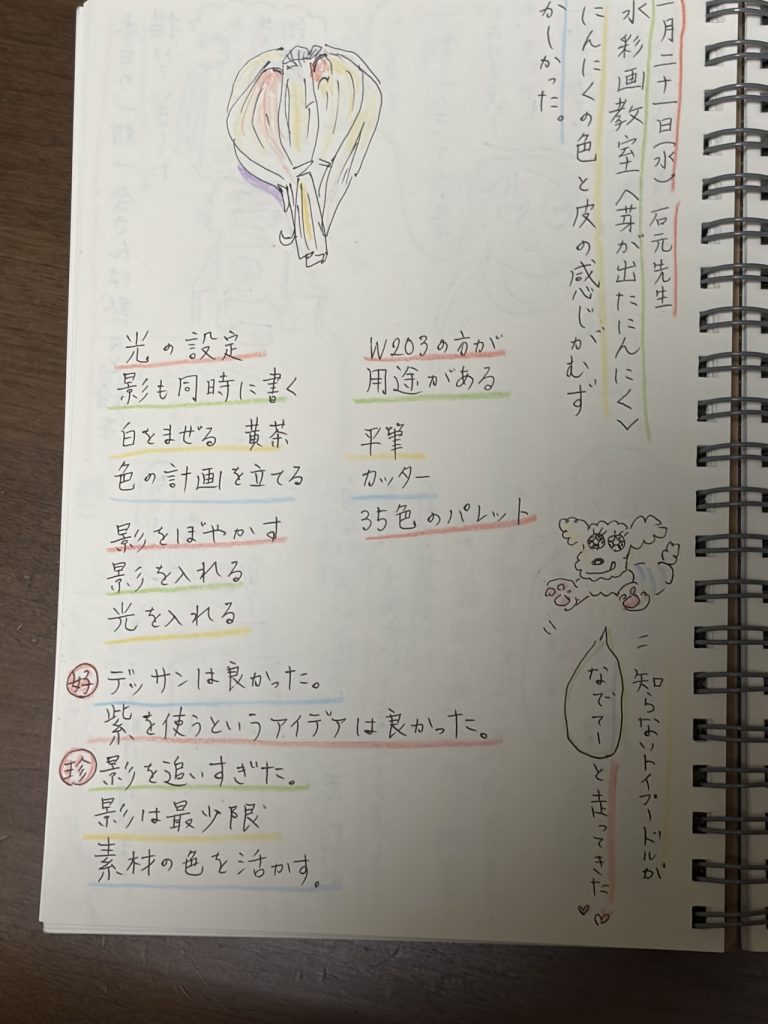 一月二十一日(水) 石元先生
水彩画教室〈芽が出たにんにく〉
にんにくの色と皮の感じがむず
かしかった。
光の設定
影も同時に書く
白をまぜる 黄茶
色の計画を立てる
影をぼやかす
影を入れる
光を入れる
W203の方が
用途がある
平筆
カッター
35色のパレット
好 デッサンは良かった。
紫を使うというアイデアは良かった。
珍 影を追いすぎた。
影は最少限
素材の色を活かす。
知らないトイプードルが
なでてー と走ってきた